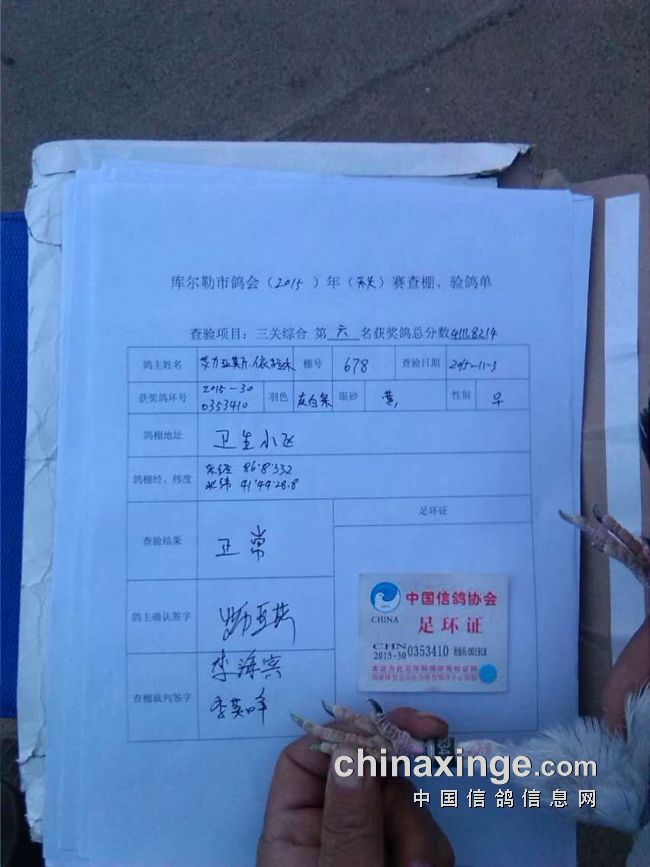 库尔勒市鸽会（2015）年（秋）赛查棚、验鸽单
查验项目：三关综合 第 六 名获奖鸽总分数4111.8214
鸽主姓名 棚号 678 查验日期 2015-11-3
获奖鸽环号 2015-30 0353410 羽色 灰白条 眼砂 黄 性别 ♀
鸽棚地址 卫生小区
鸽棚经、纬度 东经 86°8'332
北纬 41°44'28.8
查验结果 正常
足环证
鸽主确认签字
查棚裁判签字 李海宾
李英峰
中国信鸽协会
CHINA
足环证
CHN
2015-30 0353410
chinaxinge.com
中国信鸽信息网